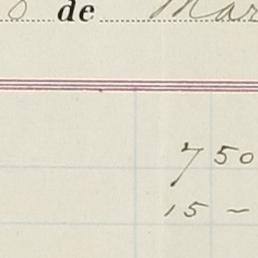 de Mar
750
15 –